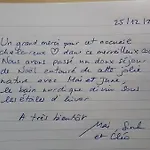 25/12/2
Un grand merci pour cet accueil
chaleureux ♡ dans ce merveilleux
Nous avons passé un doux séjour
de Noël entouré de cette jolie
nature avec Mimi et June,
le bain nordique divin sous
les étoiles d'hiver
A très bientôt
Max
et Cléo